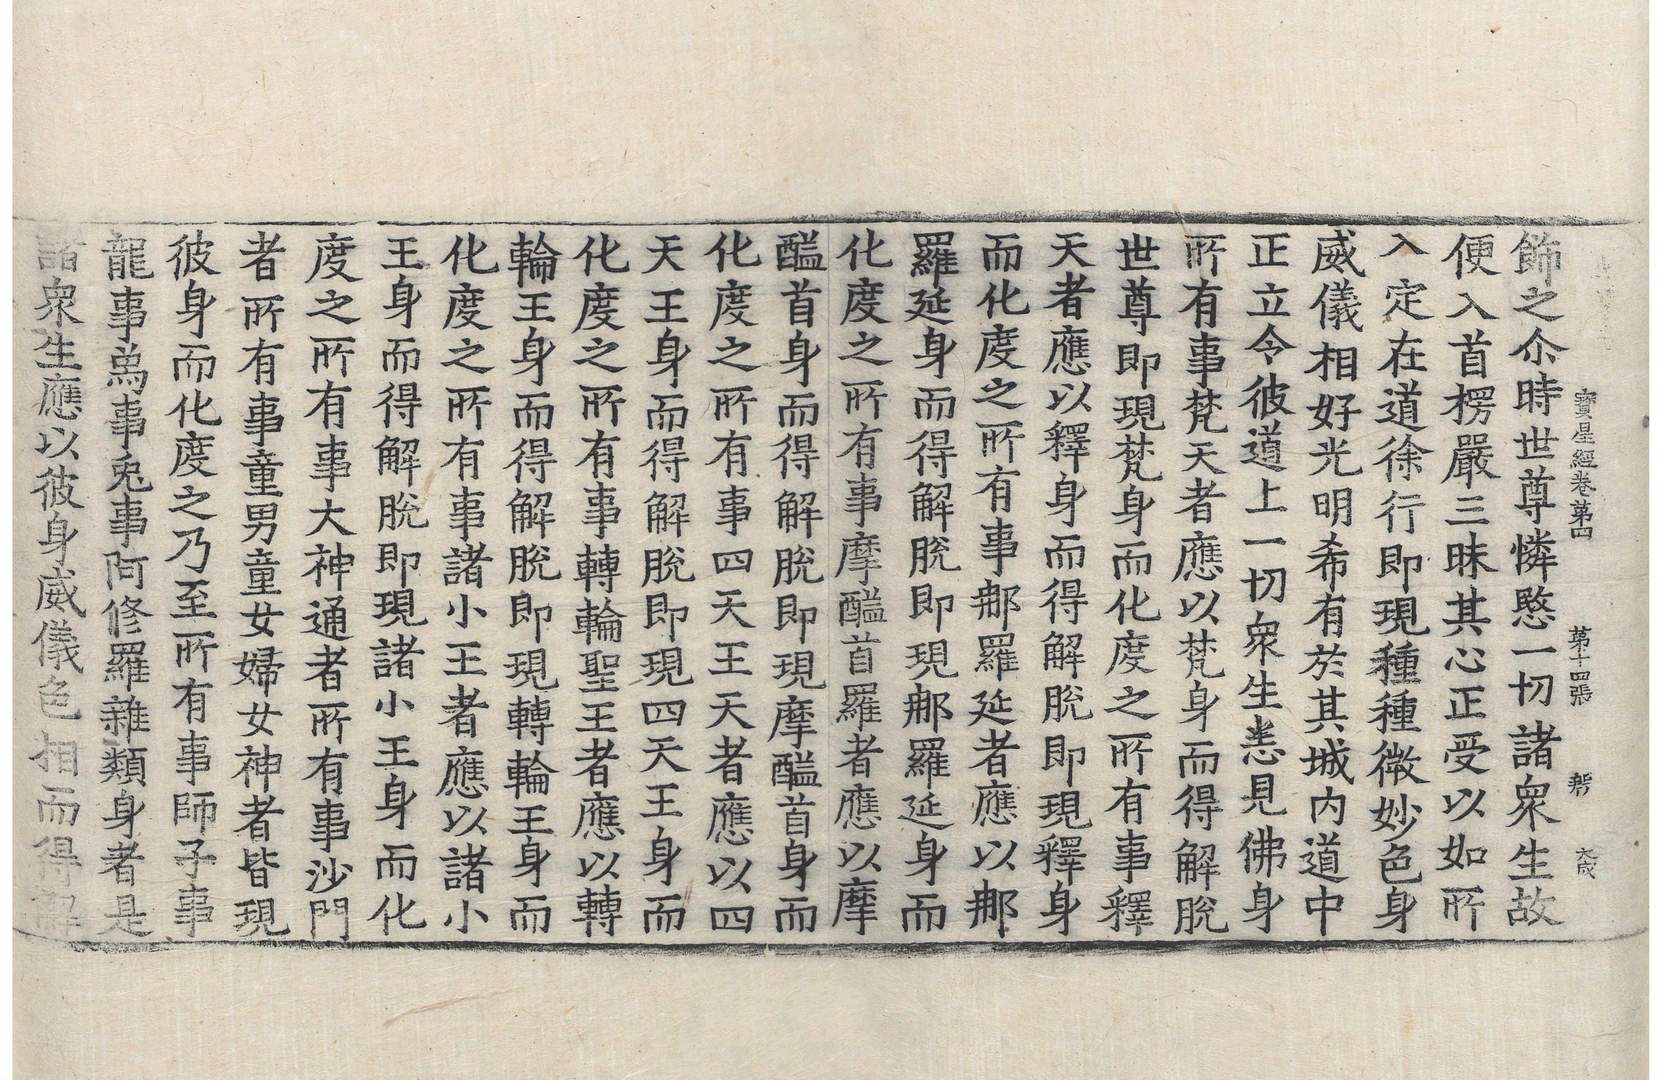 寶星經卷第四　第十四張　新　大成
飾之尒時世尊憐愍一切諸衆生故
便入首楞嚴三昧其心正受以如所
入定在道徐行即現種種微妙色身
威儀相好光明希有於其城内道中
正立令彼道上一切衆生悉見佛身
所有事梵天者應以梵身而得解脫
世尊即現梵身而化度之所有事釋
天者應以釋身而得解脫即現釋身
而化度之所有事那羅延者應以那
羅延身而得解脫即現那羅延身而
化度之所有事摩醯首羅者應以摩
醯首身而得解脫即現摩醯首身而
化度之所有事四天王天者應以四
天王身而得解脫即現四天王身而
化度之所有事轉輪聖王者應以轉
輪王身而得解脫即現轉輪王身而
化度之所有事諸小王者應以諸小
王身而得解脫即現諸小王身而化
度之所有事大神通者所有事沙門
者所有事童男童女婦女神者皆現
彼身而化度之乃至所有事師子事
龍事爲事兎事阿修羅雜類身者是
諸衆生應以彼身威儀色相而得解